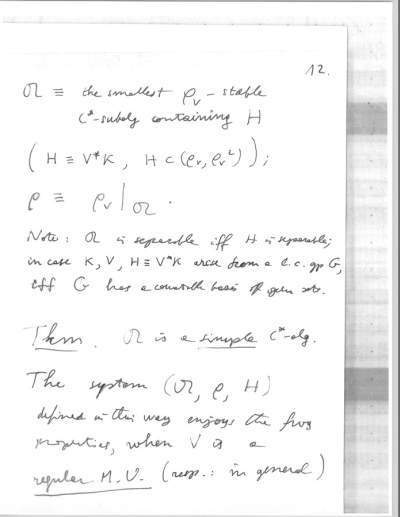 12.
𝒪 ≡ the smallest ρ_V - stable
C*-subalg containing H
( H ≡ V*K , H ⊂ (ρ_V, ρ_V²) ) ;
ρ ≡ ρ_V |_𝒪 .
Note: 𝒪 is separable iff H is separable;
in case K, V, H ≡ V*K arise from a l.c. gp G,
iff G has a countable basis of open sets.
Thm. 𝒪 is a simple C*-alg.
The system (𝒪, ρ, H)
defined in this way enjoys the fwg
properties, when V is a
regular M.U. (resp.: in general)